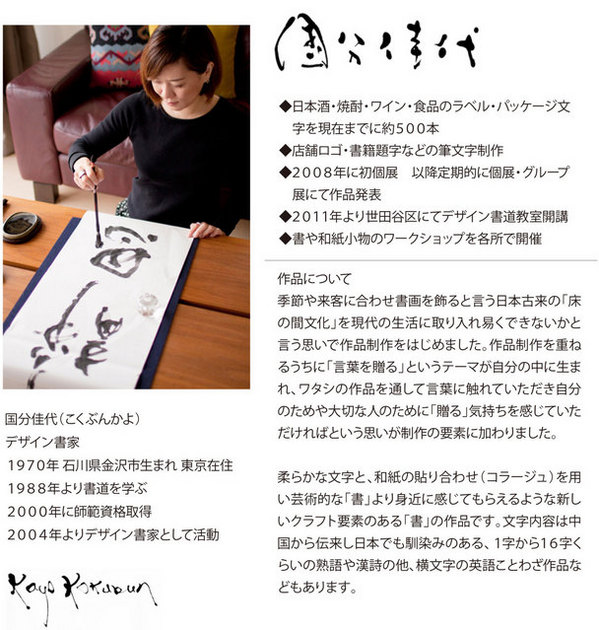 国分佳代
◆日本酒・焼酎・ワイン・食品のラベル・パッケージ文
字を現在までに約５００本
◆店舗ロゴ・書籍題字などの筆文字制作
◆２００８年に初個展　以降定期的に個展・グループ
展にて作品発表
◆２０１１年より世田谷区にてデザイン書道教室開講
◆書や和紙小物のワークショップを各所で開催
作品について
季節や来客に合わせ書画を飾ると言う日本古来の「床
の間文化」を現代の生活に取り入れ易くできないかと
言う思いで作品制作をはじめました。作品制作を重ね
るうちに「言葉を贈る」というテーマが自分の中に生ま
れ、ワタシの作品を通して言葉に触れていただき自分
のためや大切な人のために「贈る」気持ちを感じていた
だければという思いが制作の要素に加わりました。
柔らかな文字と、和紙の貼り合わせ（コラージュ）を用
い芸術的な「書」より身近に感じてもらえるような新し
いクラフト要素のある「書」の作品です。文字内容は中
国から伝来し日本でも馴染みのある、１字から１６字く
らいの熟語や漢詩の他、横文字の英語ことわざ作品な
どもあります。
国分佳代（こくぶんかよ）
デザイン書家
１９７０年 石川県金沢市生まれ 東京在住
１９８８年より書道を学ぶ
２０００年に師範資格取得
２００４年よりデザイン書家として活動
Kayo Kokubun